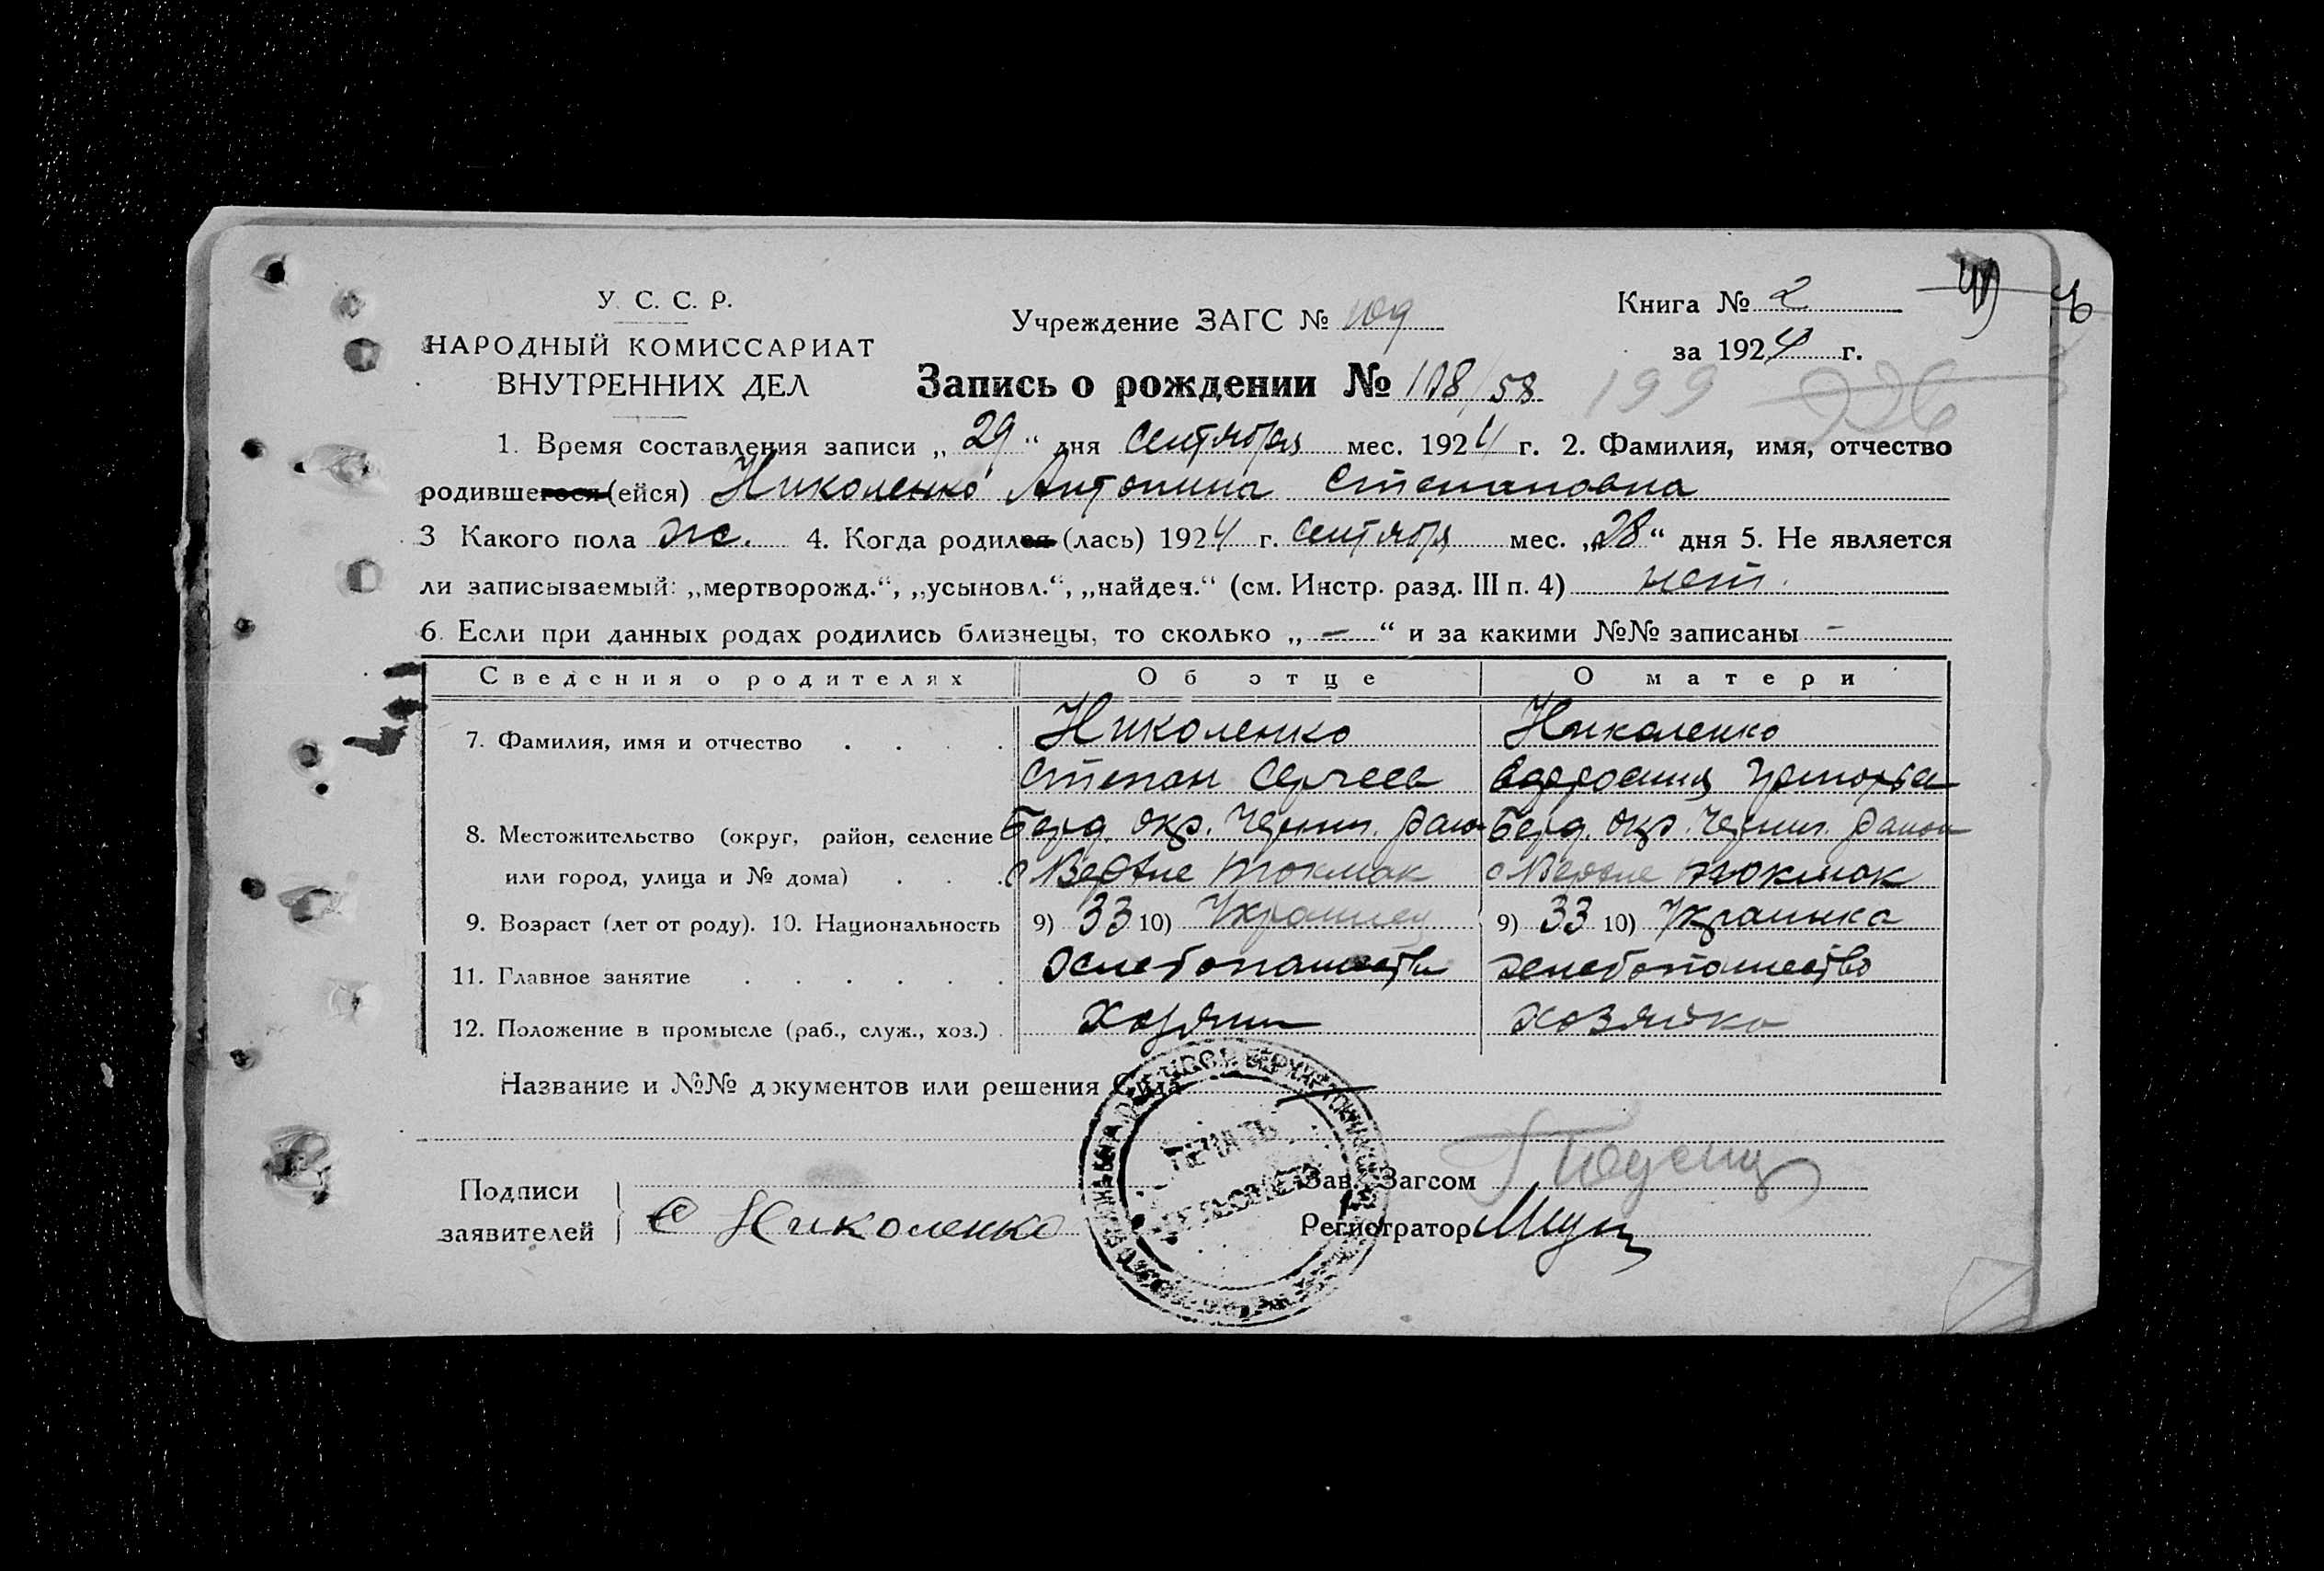 У. С. С. Р.
НАРОДНЫЙ КОМИССАРИАТ
ВНУТРЕННИХ ДЕЛ
Учреждение ЗАГС № 109
Книга № 2
за 1924 г.
Запись о рождении № 108/58
199 226
1. Время составления записи „29“ дня Сентября мес. 1924 г. 2. Фамилия, имя, отчество
родившегося (ейся) Николенко Антонина Степановна
3 Какого пола ж. 4. Когда родился (лась) 1924 г. Сентября мес. „28“ дня 5. Не является
ли записываемый: „мертворожд.“, „усыновл.“, „найден.“ (см. Инстр. разд. III п. 4) нет.
6. Если при данных родах родились близнецы, то сколько „ — “ и за какими №№ записаны -
Сведения о родителях Об отце О матери
7. Фамилия, имя и отчество . . . . Николенко Николенко
Степан Сергеев
8. Местожительство (округ, район, селение Берд. окр. Черниг. район Берд. окр. Черниг. район
или город, улица и № дома) . . . с Верхне Токмак с Верхне Токмак
9. Возраст (лет от роду). 10. Национальность 9) 33 10) Украинец 9) 33 10) Украинка
11. Главное занятие . . . . . . хлебопашество хлебопашество
12. Положение в промысле (раб., служ., хоз.) . хозяин хозяйка
Название и №№ документов или решения Суда —
ПЕЧАТЬ
СЕЛЬСОВЕТА
Подписи
заявителей С Николенко
Зав. Загсом
Регистратор